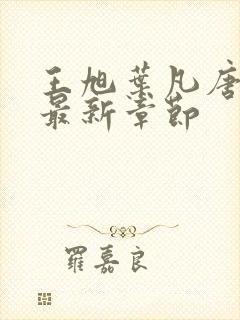 王旭葉凡唐
最新章節
羅嘉良